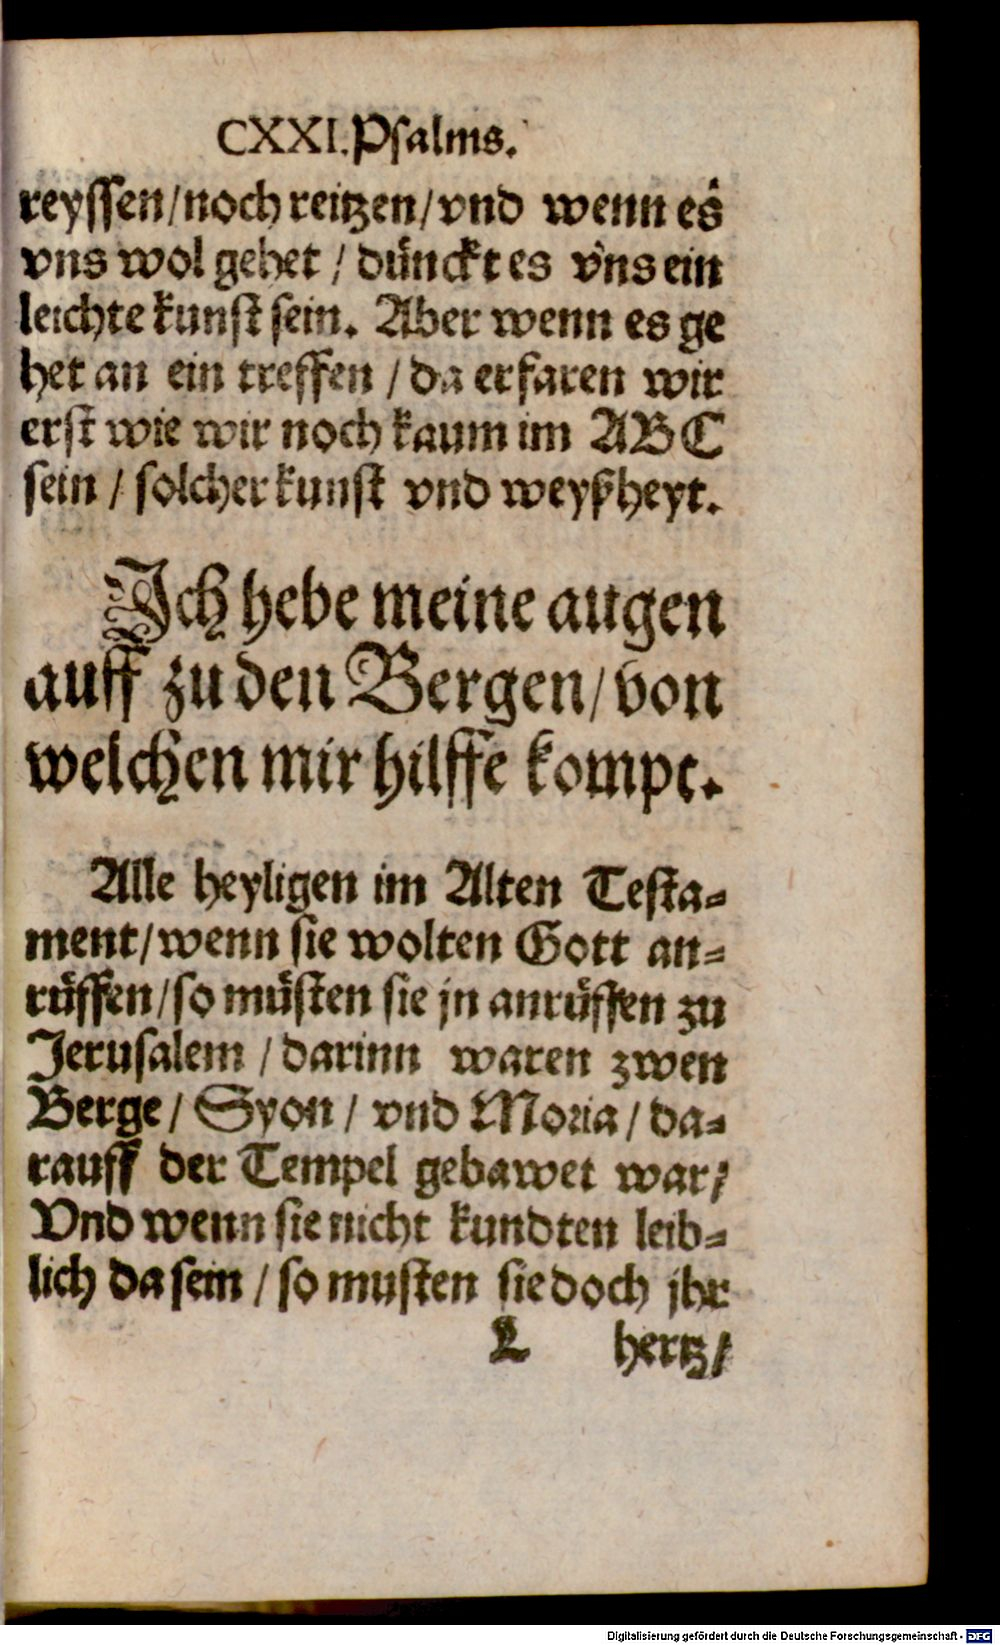 CXXI. Psalms.
reyssen/noch reitzen/vnd wenn es
vns wol gehet / dünckt es vns ein
leichte kunst sein. Aber wenn es ge
het an ein treffen / da erfaren wir
erst wie wir noch kaum im ABC
sein / solcher kunst vnd weyßheyt.
Ich hebe meine augen
auff zu den Bergen/von
welchen mir hilffe kompt.
Alle heyligen im Alten Testa=
ment/wenn sie wolten Gott an=
rüffen/so müsten sie jn anrüffen zu
Jerusalem / darinn waren zwen
Berge/ Syon/ vnd Moria/ da=
rauff der Tempel gebawet war/
Vnd wenn sie nicht kundten leib=
lich da sein / so musten sie doch jhr
L hertz/
Digitalisierung gefördert durch die Deutsche Forschungsgemeinschaft - DFG